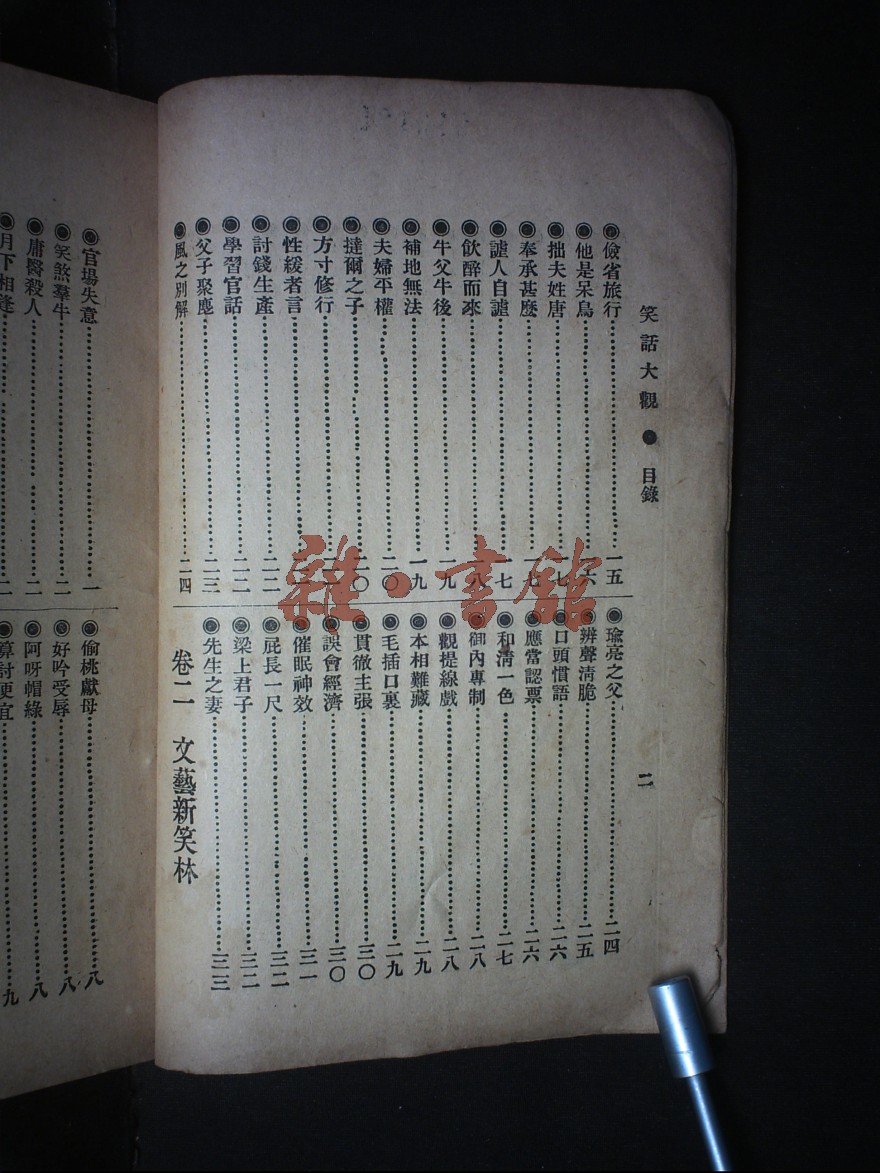 笑話大觀 ● 目錄
二
◉儉省旅行……一五
◉他是呆鳥……六
◉拙夫姓唐……一七
◉奉承甚麼……一七
◉謔人自謔……一七
◉飲醉而來……八
◉牛父牛後……一九
◉補地無法……一九
◉夫婦平權……二〇
◉撻爾之子……二〇
◉方寸修行……
◉性緩者言……
◉討錢生產……二二
◉學習官話……二二
◉父子聚麀……二三
◉風之別解……二四
◉瑜亮之父……二四
◉辨聲淸脆……二五
◉口頭慣語……二六
◉應當認票……二六
◉和淸一色……二七
◉御內專制……二八
◉觀提線戲……二八
◉本相難藏……二九
◉毛插口裏……二九
◉貫徹主張……三〇
◉誤會經濟……三〇
◉催眠神效……三一
◉屁長一尺……三二
◉梁上君子……三二
◉先生之妻……三三
卷二 文藝新笑林
◉官場失意……一
◉笑煞羣牛……二
◉庸醫殺人……二
◉月下相逢……二
◉偷桃獻母……八
◉好吟受辱……八
◉阿呀帽綠……八
◉算討便宜……九
雜·書館